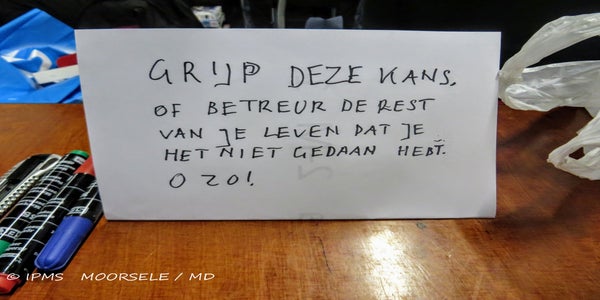 GRIJP DEZE KANS,
OF BETREUR DE REST
VAN JE LEVEN DAT JE
HET NIET GEDAAN HEBT.
O ZO!
© IPMS MOORSELE / MD